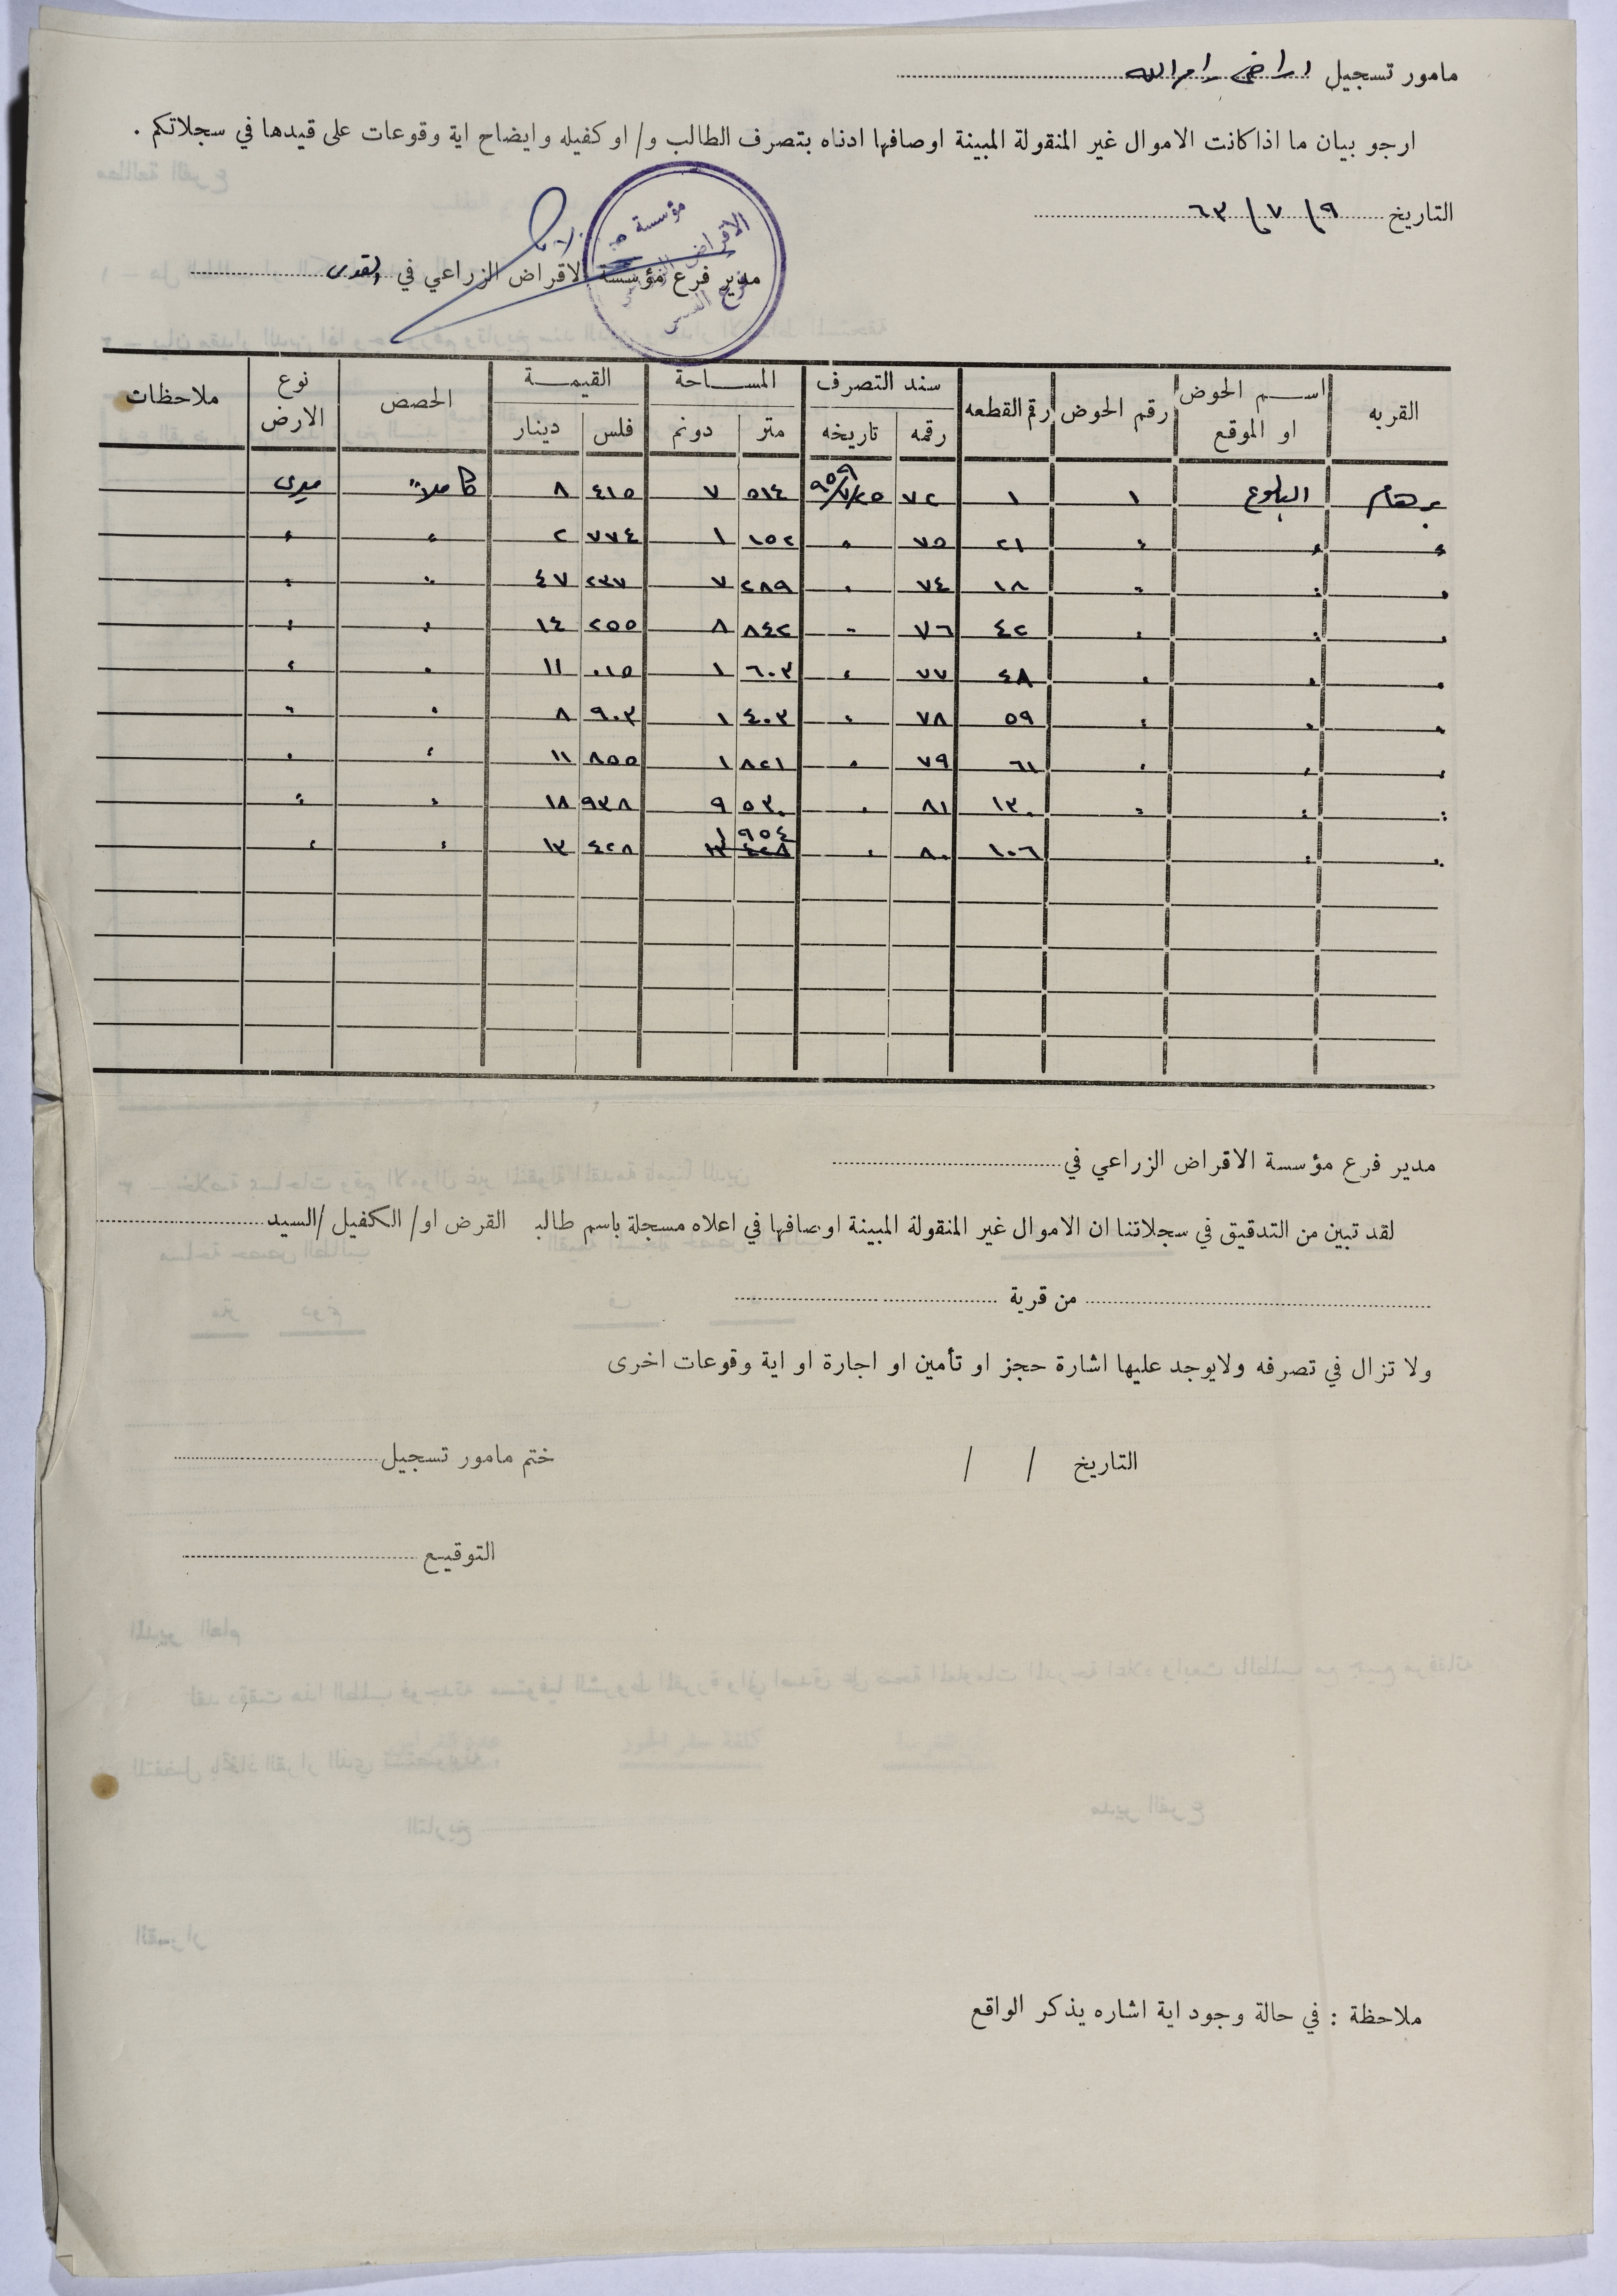 مامور تسجيل اراضي رام الله
ارجو بيان ما اذا كانت الاموال غير المنقولة المبينة اوصافها ادناه بتصرف الطالب و/ او كفيله وايضاح اية وقوعات على قيدها في سجلاتكم .
التاريخ ٩ / ٧ / ٦٣
مؤسسة
الاقراض
مدير فرع مؤسسة الاقراض الزراعي في القدس
القريه | اسم الحوض او الموقع | رقم الحوض | رقم القطعه | سند التصرف | المساحة | القيمة | الحصص | نوع الارض | ملاحظات
رقمه | تاريخه | متر | دونم | فلس | دينار
برهام | البلوع | ١ | ١ | ٧٢ | ٩٥٩/٧/٢٥ | ٥١٤ | ٧ | ٤١٥ | ٨ | كاملا | ميري
״ | ״ | ״ | ٢١ | ٧٥ | ״ | ١٥٢ | ١ | ٧٧٤ | ٢ | ״ | ״
״ | ״ | ״ | ١٨ | ٧٤ | ״ | ٢٨٩ | ٧ | ٢٣٧ | ٤٧ | ״ | ״
״ | ״ | ״ | ٤٢ | ٧٦ | ״ | ٨٤٢ | ٨ | ٢٥٥ | ١٤ | ״ | ״
״ | ״ | ״ | ٤٨ | ٧٧ | ״ | ٦٠٣ | ١ | ٠١٥ | ١١ | ״ | ״
״ | ״ | ״ | ٥٩ | ٧٨ | ״ | ٤٠٣ | ١ | ٩٠٣ | ٨ | ״ | ״
״ | ״ | ״ | ٦١ | ٧٩ | ״ | ٨٢١ | ١ | ٨٥٥ | ١١ | ״ | ״
״ | ״ | ״ | ١٣٠ | ٨١ | ״ | ٥٣٠ | ٩ | ٩٣٨ | ١٨ | ״ | ״
״ | ״ | ١٠٦ | ٨٠ | ״ | ٩٥٤ | ١ | ٤٢٨ | ١٣ | ״ | ״
مدير فرع مؤسسة الاقراض الزراعي في
لقد تبين من التدقيق في سجلاتنا ان الاموال غير المنقولة المبينة اوصافها في اعلاه مسجلة باسم طالب القرض او/ الكفيل /السيد
من قرية
ولا تزال في تصرفه ولايوجد عليها اشارة حجز او تأمين او اجارة او اية وقوعات اخرى
التاريخ / / ختم مامور تسجيل
التوقيع
ملاحظة : في حالة وجود اية اشاره يذكر الواقع